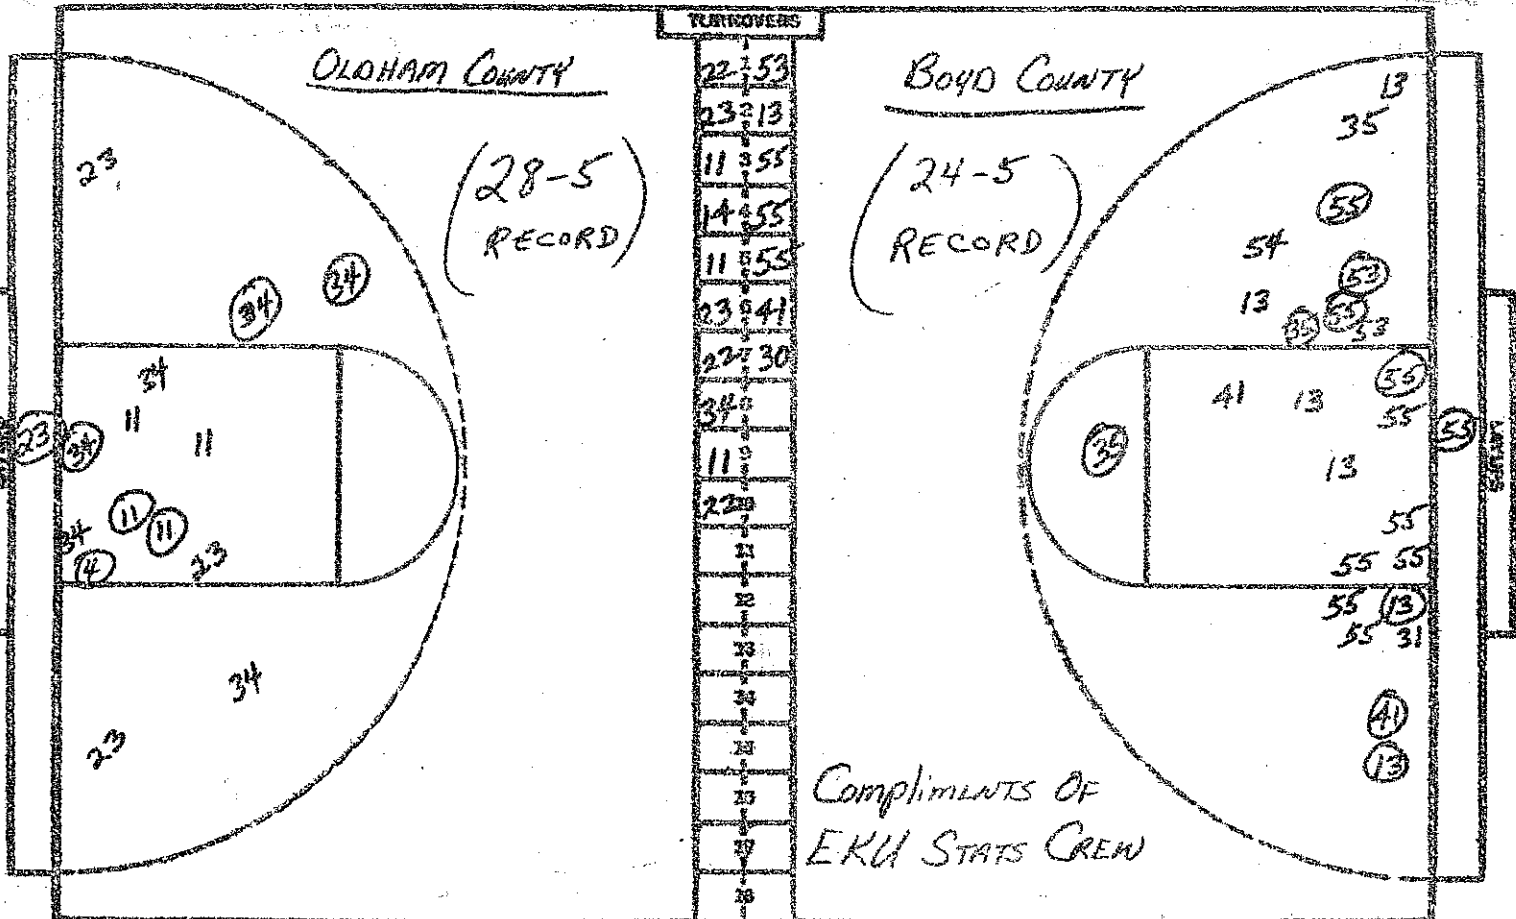 TURNOVERS
OLDHAM COUNTY
(28-5
RECORD)
23
34
34
34
11
11
23
34
11
11
34
4
23
34
23
22 1 53
23 2 13
11 3 55
14 4 55
11 5 55
23 6 41
22 7 30
34 8
11 9
22 10
11
12
13
14
17
18
BOYD COUNTY
(24-5
RECORD)
13
35
55
54
53
13
35
55
53
41
13
55
55
53
LAYUPS
35
13
55
55 55
55 13
55 31
41
13
Compliments OF
EKU STATS CREW